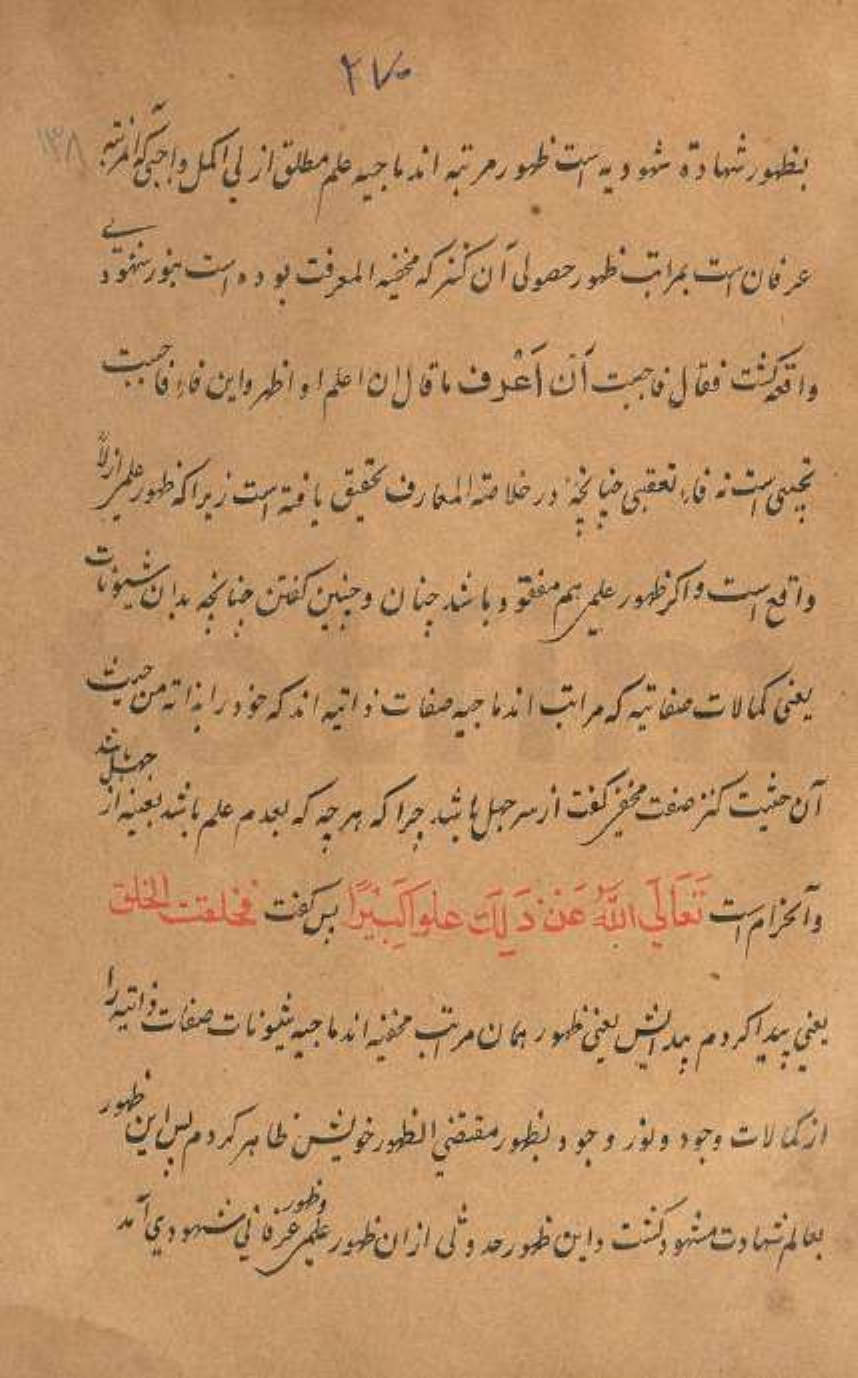 ۲۷۰
۱۳۸
بظهور شهادة شهودیه است ظهور مرتبه اندماجیه علم مطلق ازلی اکمل واجبی که مرتبه
عرفان است بمراتب ظهور حصولی آن کنز که مخفیه المعرفت بوده است بنور شهودیے
واقعه کشت فقال فاحببت آن اَعْرف ما قال ان اعلم او اظهر و این فاء فاحببت
تحبیبی است نه فاء تعقیبی چنانچه در خلاصة المعارف تحقیق یافته است زیرا که ظهور علمی ازلاً
واقع است و اکر ظهور علمی هم مفقود باشد چنان و چنین کفتن چنانچه بدان شیونات
یعنی کمالات صفاتیه که مراتب اندماجیه صفات ذاتیه اند که خود را بذاته من حیث
آن حیثیت کنز صفت مخفی کفت از سر جهل باشد چرا که هر چه که بعدم علم باشد بعینه از جهل باشد
و آن حرام است تَعَالَي اللّٰهُ عَنْ ذَلِكَ علواكَبِيْرًا پس کفت فخلقت الخلق
یعنی پیدا کردم پیدایش یعنی ظهور همان مراتب مخفیه اندماجیه شیونات صفات ذاتیه را
از کمالات وجود و نور وجود بظهور مقتضي الظهور خویش ظاهر کردم پس این ظهور
بعالم شهادت مشهود کشت و این ظهور حدوثی ازان ظهور علمی و ظهور عرفانی شهودي آمد